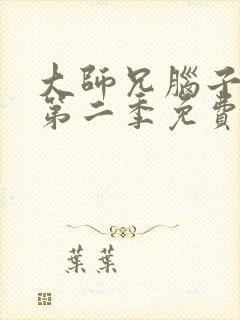 大師兄腦子
第二季免費
葉葉